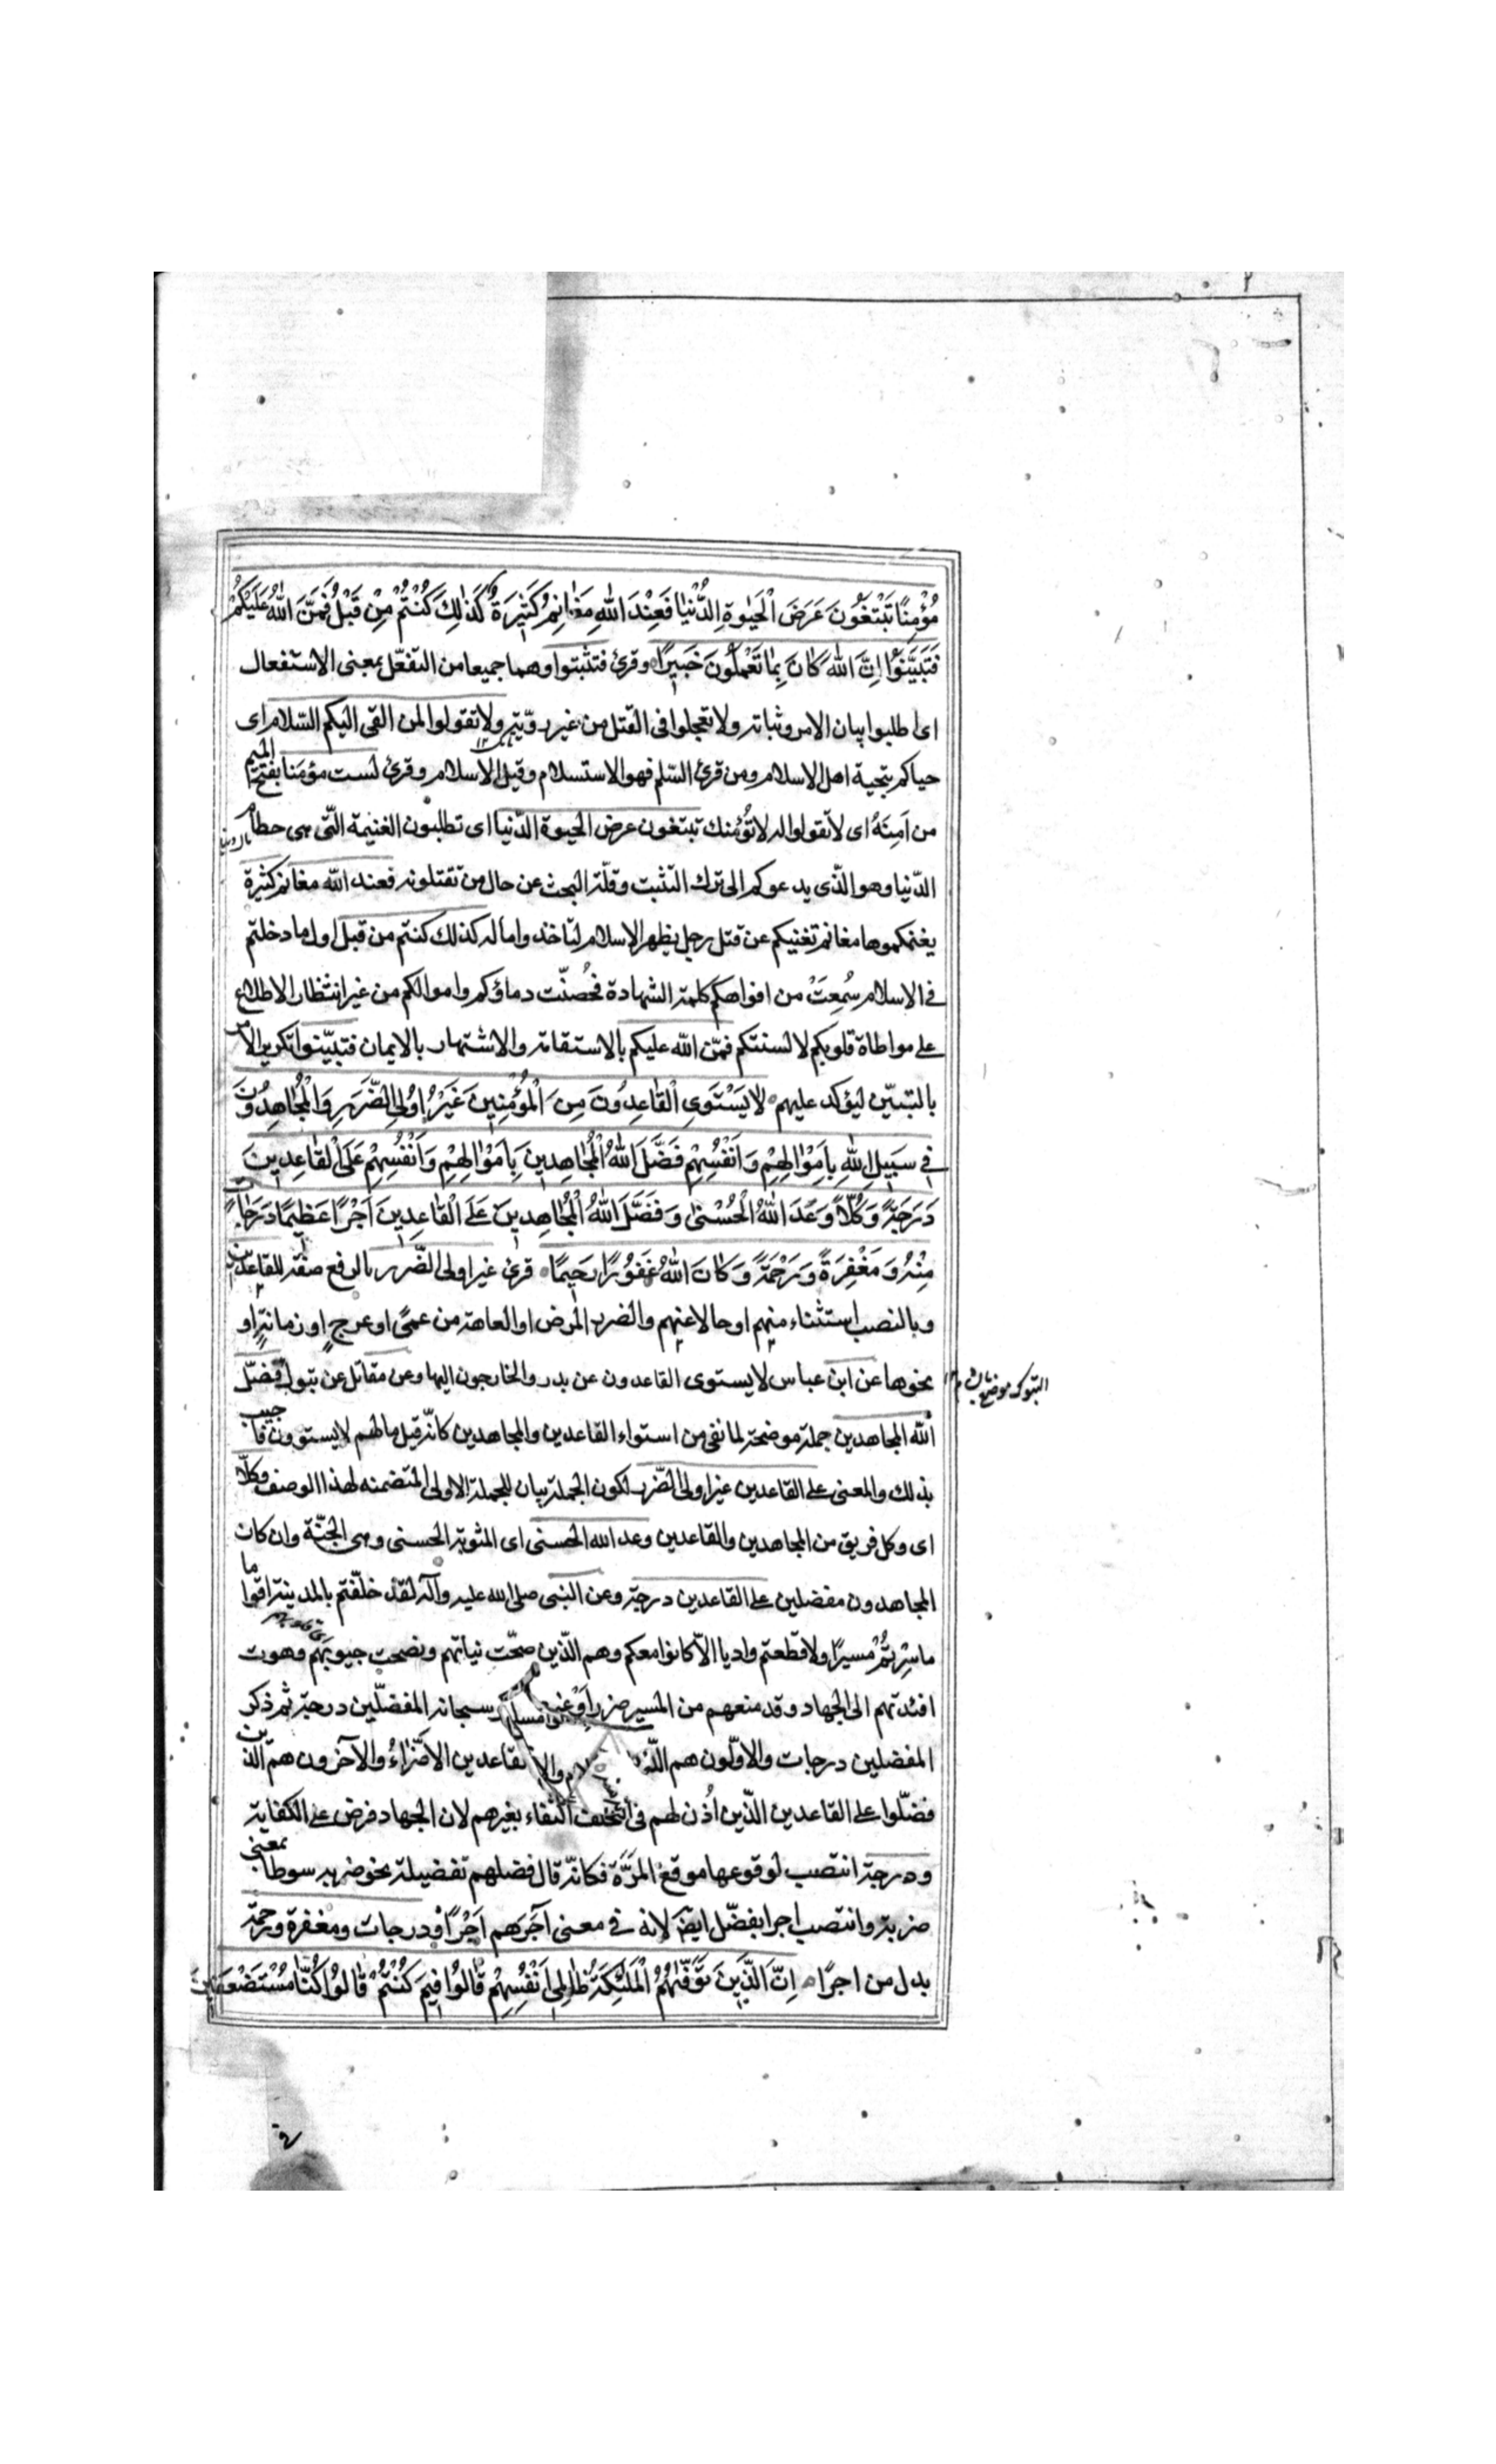 مُؤْمِنًا تَبْتَغُونَ عَرَضَ الْحَيٰوةِ الدُّنْيٰا فَعِنْدَ اللّٰهِ مَغٰانِمُ كَثِيرَةٌ كَذٰلِكَ كُنْتُمْ مِنْ قَبْلُ فَمَنَّ اللّٰهُ عَلَيْكُمْ
فَتَبَيَّنُوْا اِنَّ اللّٰهَ كٰانَ بِمٰا تَعْمَلُونَ خَبِيرًا وقرئ فتثبتوا وهما جميعا من التفعّل بمعنى الاستفعال
اى اطلبوا بيان الامر وثباته ولا تعجلوا فى القتل من غير رويّة ولا تقولوا لمن القى اليكم السّلام اى
حياكم بتحية اهل الاسلام ومن قرئ السّلم فهو الاستسلام وقيل الاسلام وقرئ لست مؤمَنا بفتح الميم
من اٰمنَهُ اى لا تقولوا له لا نُؤمنك تبتغون عرض الحيوة الدّنيا اى تطلبون الغنيمة الّتى هى حطام
الدّنيا وهو الّذى يدعوكم الى ترك التثبت وقلّة البحث عن حال من تقتلونه فعند اللّه مغانم كثيرة
يغنمكموها مغانم تغنيكم عن قتل رجل يظهر الاسلام لتاخذوا ماله كذلك كنتم من قبل اول ما دخلتم
فى الاسلام سُمِعَتْ من افواهكم كلمة الشهادة فحُصنّت دماؤكم واموالكم من غير انتظار الاطلاع
على مواطاة قلوبكم لالسنتكم فمّن اللّه عليكم بالاستقامة والاشتهار بالايمان فتبيّنوا تكرير الامر
بالتبيّن ليؤكد عليهم لٰا يَسْتَوِى الْقٰاعِدُونَ مِنَ الْمُؤْمِنِينَ غَيْرُ اُولِى الضَّرَرِ وَالْمُجٰاهِدُونَ
فِى سَبِيلِ اللّٰهِ بِاَمْوٰالِهِمْ وَاَنْفُسِهِمْ فَضَّلَ اللّٰهُ الْمُجٰاهِدِينَ بِاَمْوٰالِهِمْ وَاَنْفُسِهِمْ عَلَى الْقٰاعِدِينَ
دَرَجَةً وَكُلًّا وَعَدَ اللّٰهُ الْحُسْنٰى وَفَضَّلَ اللّٰهُ الْمُجٰاهِدِينَ عَلَى الْقٰاعِدِينَ اَجْرًا عَظِيمًا دَرَجٰاتٍ
مِنْهُ وَمَغْفِرَةً وَرَحْمَةً وَكٰانَ اللّٰهُ غَفُورًا رَحِيمًا قرئ غير اولى الضّرر بالرفع صفة للقاعدين
وبالنصب استثناء منهم او حالا عنهم والضرر المرض او العاهة من عمًى او عرج او زمانة او
نحوها عن ابن عباس لا يستوى القاعدون عن بدر والخارجون اليها وعن مقاتل عن تبوك فضّل
اللّه المجاهدين جملة موضحة لما نفى من استواء القاعدين والمجاهدين كانّه قيل مالهم لا يستوون فاجيب
بذلك والمعنى على القاعدين غير اولى الضّرر لكون الجملة بيان للجملة الاولى المتضمنه لهذا الوصف وكلّا
اى وكل فريق من المجاهدين والقاعدين وعد الله الحسنى اى المثوبة الحسنى وهى الجنّة وان كان
المجاهدون مفضلين على القاعدين درجة وعن النبى صلى الله عليه وآله لقد خلّفتم بالمدينة اقواما
ما سِرْتُمْ مَسيرًا ولا قطعتم واديا الّا كانوا معكم وهم الّذين صحّت نياتهم ونصحت جيوبهم وهوت
افئدتهم الى الجهاد وقد منعهم من المسير ضرر اَوْ غيره سبحانه المفضّلين درجة ثم ذكر
المفضلين درجات والاوّلون هم القاعدين الاضّرآءُ والآخرون هم الّذين
فضّلوا على القاعدين الّذين اُذن لهم فى التخلف اكتفاء بغيرهم لان الجهاد فرض على الكفاية
ودرجة انتصب لوقوعها موقع المَرَّة فكانّه قال فضلهم تفضيلة نحو ضربه سوطا بمعنى
ضربة وانتصب اجرا بفضّل ايضا لانه فى معنى آجَرَهم اَجْرًا ودرجات ومغفرة ورحمة
بدل من اجرًا اِنَّ الَّذِينَ تَوَفّٰيهُمُ الْمَلٰئِكَةُ ظٰالِمِى اَنْفُسِهِمْ قٰالُوْا فِيمَ كُنْتُمْ قٰالُوْا كُنّٰا مُسْتَضْعَفِينَ
التبوك موضع بالشام
فى